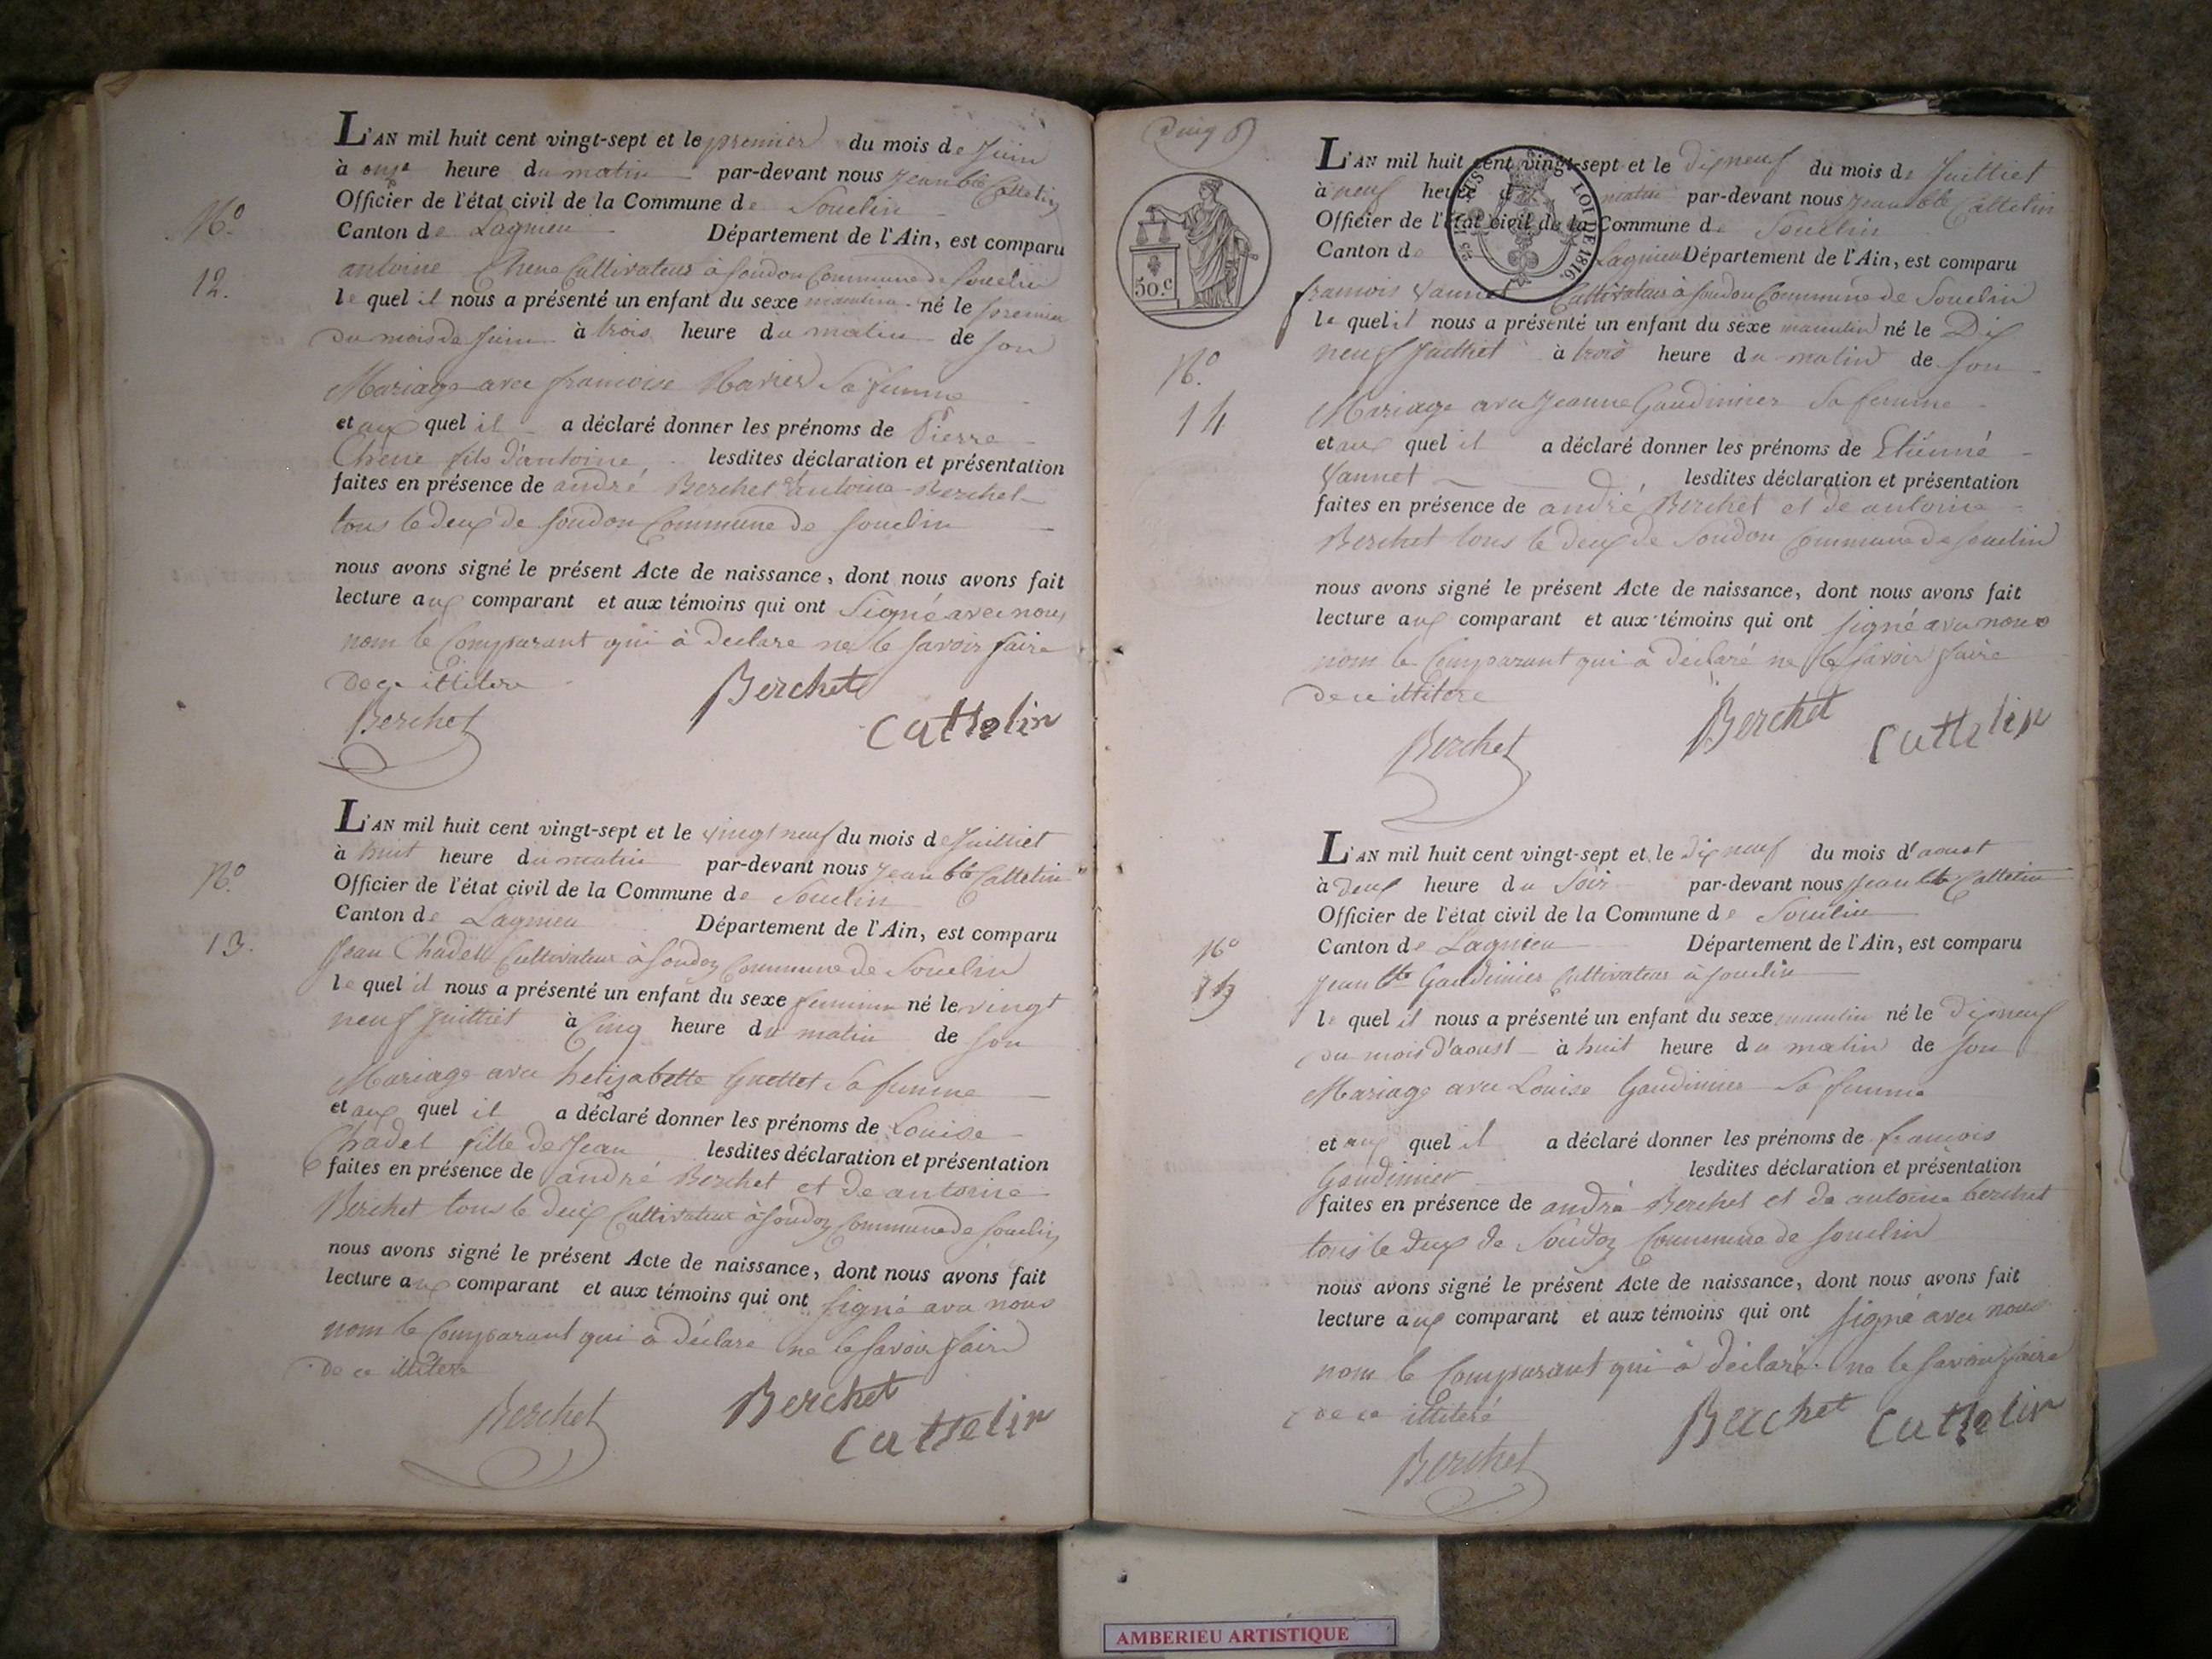 L'AN mil huit cent vingt-sept et le premier du mois de Juin
à onze heure du matin par-devant nous Jean bte Cattelin
Officier de l'état civil de la Commune de Souclin
Canton de Lagnieu Département de l'Ain, est comparu
N.º
12.
antoine Chene Cultivateur à Soudon Commune de Souclin
le quel il nous a présenté un enfant du sexe masculin né le premier
du mois de Juin à trois heure du matin de son
Mariage avec francoise sa femme
et aux quel il a déclaré donner les prénoms de Pierre
Chene fils d'antoine lesdites déclaration et présentation
faites en présence de andré Berchet et antoine Berchet
tous le deux de Soudon Commune de Souclin
nous avons signé le présent Acte de naissance, dont nous avons fait
lecture aux comparant et aux témoins qui ont Signé avec nous
nom le Comparant qui à declare ne le savoir faire
de ce
Berchet Berchet
Cattelin
L'AN mil huit cent vingt-sept et le vingt neuf du mois de Juilliet
à huit heure du matin par-devant nous Jean bte Cattelin
Officier de l'état civil de la Commune de Souclin
Canton de Lagnieu Département de l'Ain, est comparu
N.º
13.
Jean Chadel Cultivateur à Soudon Commune de Souclin
le quel il nous a présenté un enfant du sexe feminin né le vingt
neuf Juilliet à Cinq heure du matin de son
Mariage avec helizabette Guettet sa femme
et aux quel il a déclaré donner les prénoms de Louise
Chadel fille de Jean lesdites déclaration et présentation
faites en présence de andré Berchet et de antoine
Berchet tous le deux Cultivateur à Soudon Commune de Souclin
nous avons signé le présent Acte de naissance, dont nous avons fait
lecture aux comparant et aux témoins qui ont signé avec nous
nom le Comparant qui à déclare ne le savoir faire
de ce illitere
Berchet Berchet
Cattelin
50.c
LOI DE 1816.
L'AN mil huit cent vingt-sept et le dix neuf du mois de Juilliet
à neuf heure du matin par-devant nous Jean bte Cattelin
Officier de l'état civil de la Commune de Souclin
Canton de Lagnieu Département de l'Ain, est comparu
francois Vannet Cultivateur à Soudon Commune de Souclin
le quel il nous a présenté un enfant du sexe masculin né le Dix
neuf Juilliet à trois heure du matin de son
N.º
14
Mariage avec Jeanne Gaudinier sa femme
et aux quel il a déclaré donner les prénoms de Etienné
Vannet lesdites déclaration et présentation
faites en présence de andré Berchet et de antoine
Berchet tous le deux de Soudon Commune de Souclin
nous avons signé le présent Acte de naissance, dont nous avons fait
lecture aux comparant et aux témoins qui ont signé avec nous
nom le Comparant qui à declaré ne le savoir faire
de ce illitere
Berchet Berchet Cattelin
L'AN mil huit cent vingt-sept et le dix neuf du mois d'aoust
à deux heure du Soir par-devant nous Jean bte Cattelin
Officier de l'état civil de la Commune de Souclin
Nº
Canton de Lagnieu Département de l'Ain, est comparu
Jean bte Gaudinier Cultivateur à Souclin
le quel il nous a présenté un enfant du sexe masculin né le dix neuf
du mois d'aoust à huit heure du matin de son
Mariage avec Louise Gaudinier sa femme
et aux quel il a déclaré donner les prénoms de francois
Gaudinier lesdites déclaration et présentation
faites en présence de andré Berchet et de antoine berchet
tous le deux de Soudon Commune de Souclin
nous avons signé le présent Acte de naissance, dont nous avons fait
lecture aux comparant et aux témoins qui ont signé avec nous
nom le Comparant qui à déclaré ne le savoir faire
de ce illiteré
Berchet Berchet Cattelin
AMBERIEU ARTISTIQUE